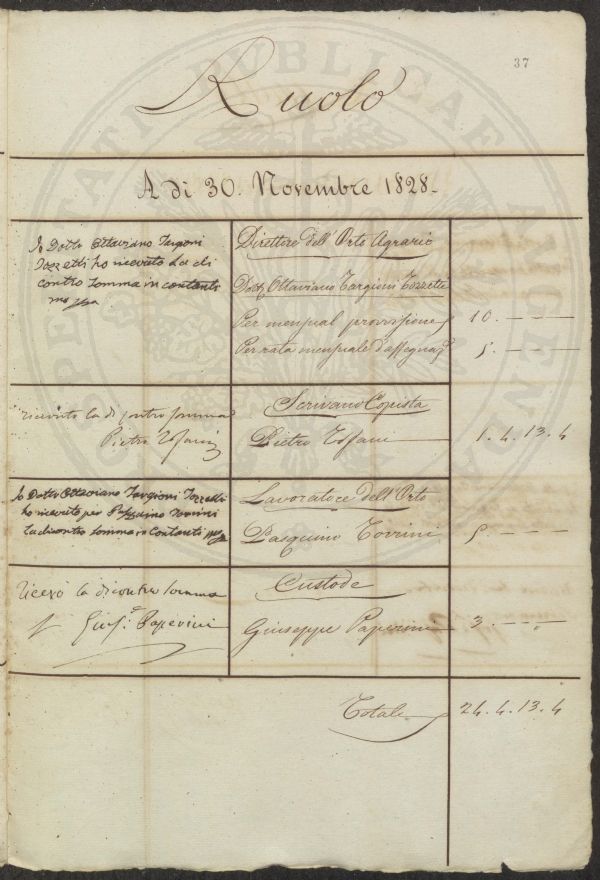 37
Ruolo
A di 30. Novembre 1828.
Io Dotto Ottaviano Targioni
Tozzetti ho ricevuto la di
contro somma in contanti
Direttore dell'Orto Agrario
Dott. Ottaviano Targioni Tozzetti
Per mensual provvisione 10. — — —
Per rata mensuale d'assegnaz. 5. — — —
ricevuto la di contro somma
Pietro Tofani
Scrivano Copista
Pietro Tofani 1. 4. 13. 4
Io Dotto Ottaviano Targioni Tozzetti
ho ricevuto per Pasquino Torrini
la di contro somma in Contanti
Lavoratore dell'Orto
Pasquino Torrini 5. — — —
la di contro somma
Gius.e Paperini
Custode
Giuseppe Paperini 3. — — —
Totale 24. 4. 13. 4